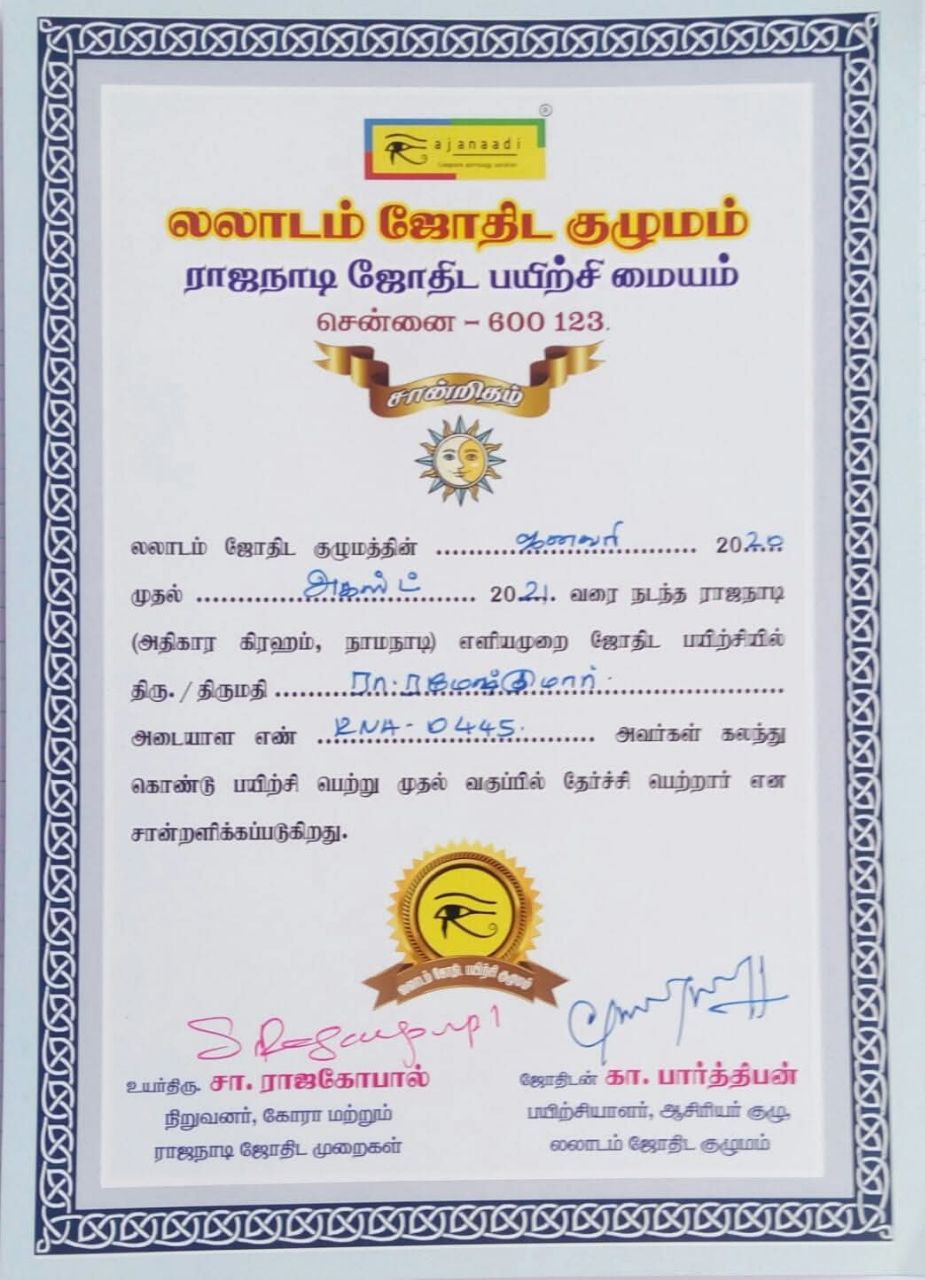 ajanaadi
®
லலாடம் ஜோதிட குழுமம்
ராஜநாடி ஜோதிட பயிற்சி மையம்
சென்னை – 600 123.
சான்றிதழ்
லலாடம் ஜோதிட குழுமத்தின் ஜனவரி 2020
முதல் அகஸ்ட் 2021. வரை நடந்த ராஜநாடி
(அதிகார கிரஹம், நாமநாடி) எளியமுறை ஜோதிட பயிற்சியில்
திரு. / திருமதி ரா. ரமேஷ்குமார்.
அடையாள எண் RNA - 0445. அவர்கள் கலந்து
கொண்டு பயிற்சி பெற்று முதல் வகுப்பில் தேர்ச்சி பெற்றார் என
சான்றளிக்கப்படுகிறது.
லலாடம் ஜோதிட பயிற்சி குழுமம்
உயர்திரு. சா. ராஜகோபால்
நிறுவனர், கோரா மற்றும்
ராஜநாடி ஜோதிட முறைகள்
ஜோதிடன் கா. பார்த்திபன்
பயிற்சியாளர், ஆசிரியர் குழு,
லலாடம் ஜோதிட குழுமம்